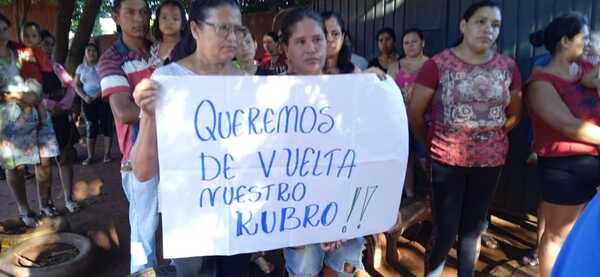 QUEREMOS
DE VUELTA
NUESTRO
RUBRO !!